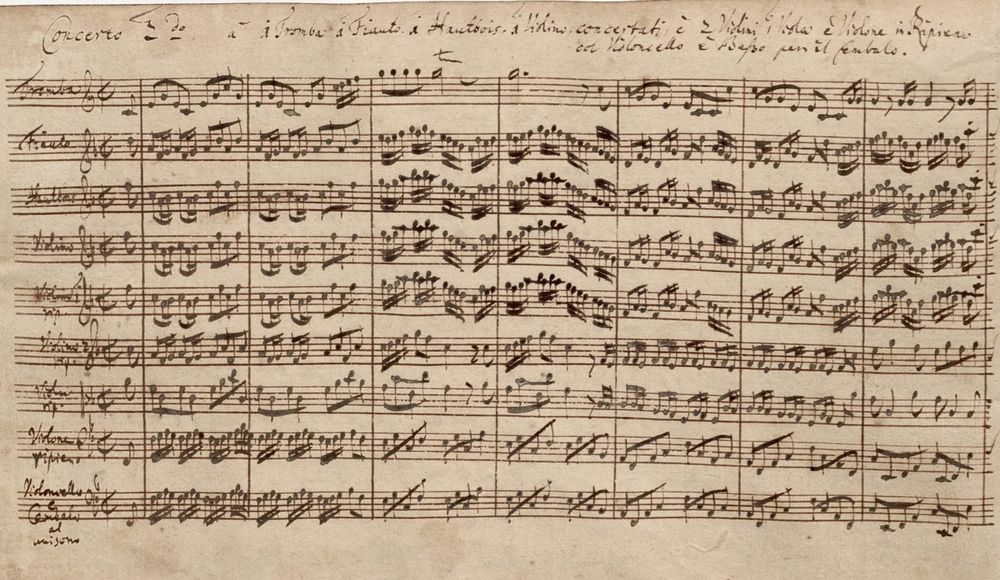 Concerto 2do à 1 Tromba 1 Flauto. 1 Hautbois. 1 Violino, concertati, è 2 Violini 1 Viola è Violone in Ripieno
col Violoncello è Basso per il Cembalo.
Tromba
Flauto
Hautbois
Violino
Violino 1
rip.
Violino 2
rip.
Viola
rip.
Violone
ripien.
Violoncello
e
Cembalo
al
unisono